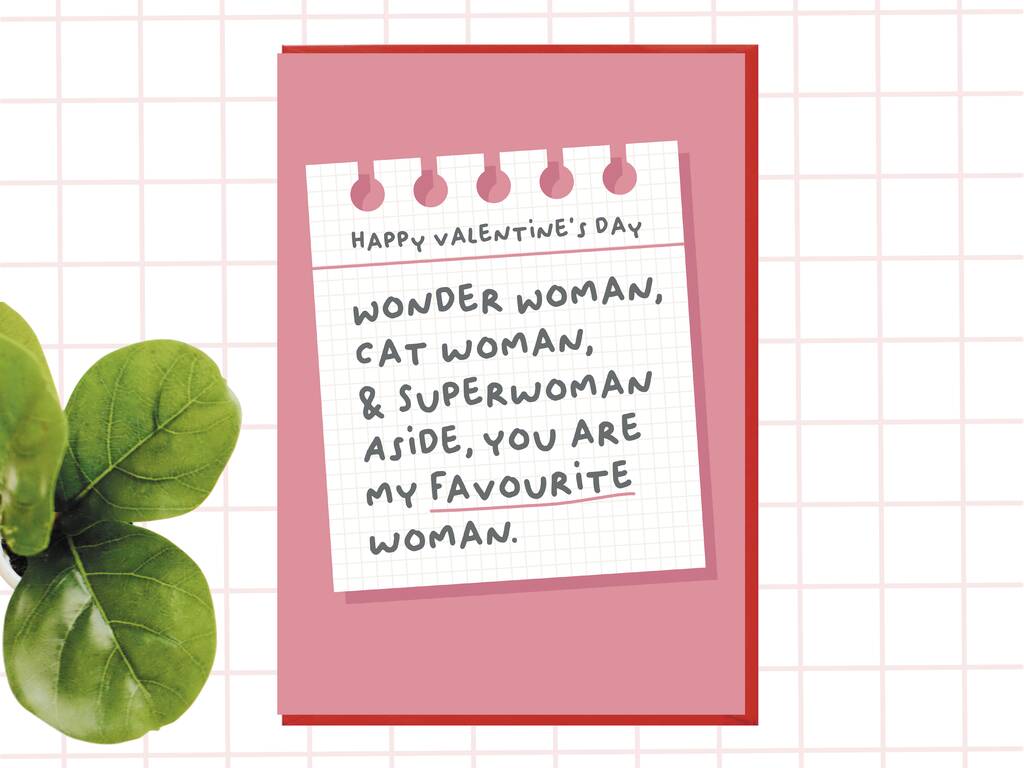 HAPPY VALENTINE'S DAY
WONDER WOMAN,
CAT WOMAN,
& SUPERWOMAN
ASIDE, YOU ARE
MY FAVOURITE
WOMAN.